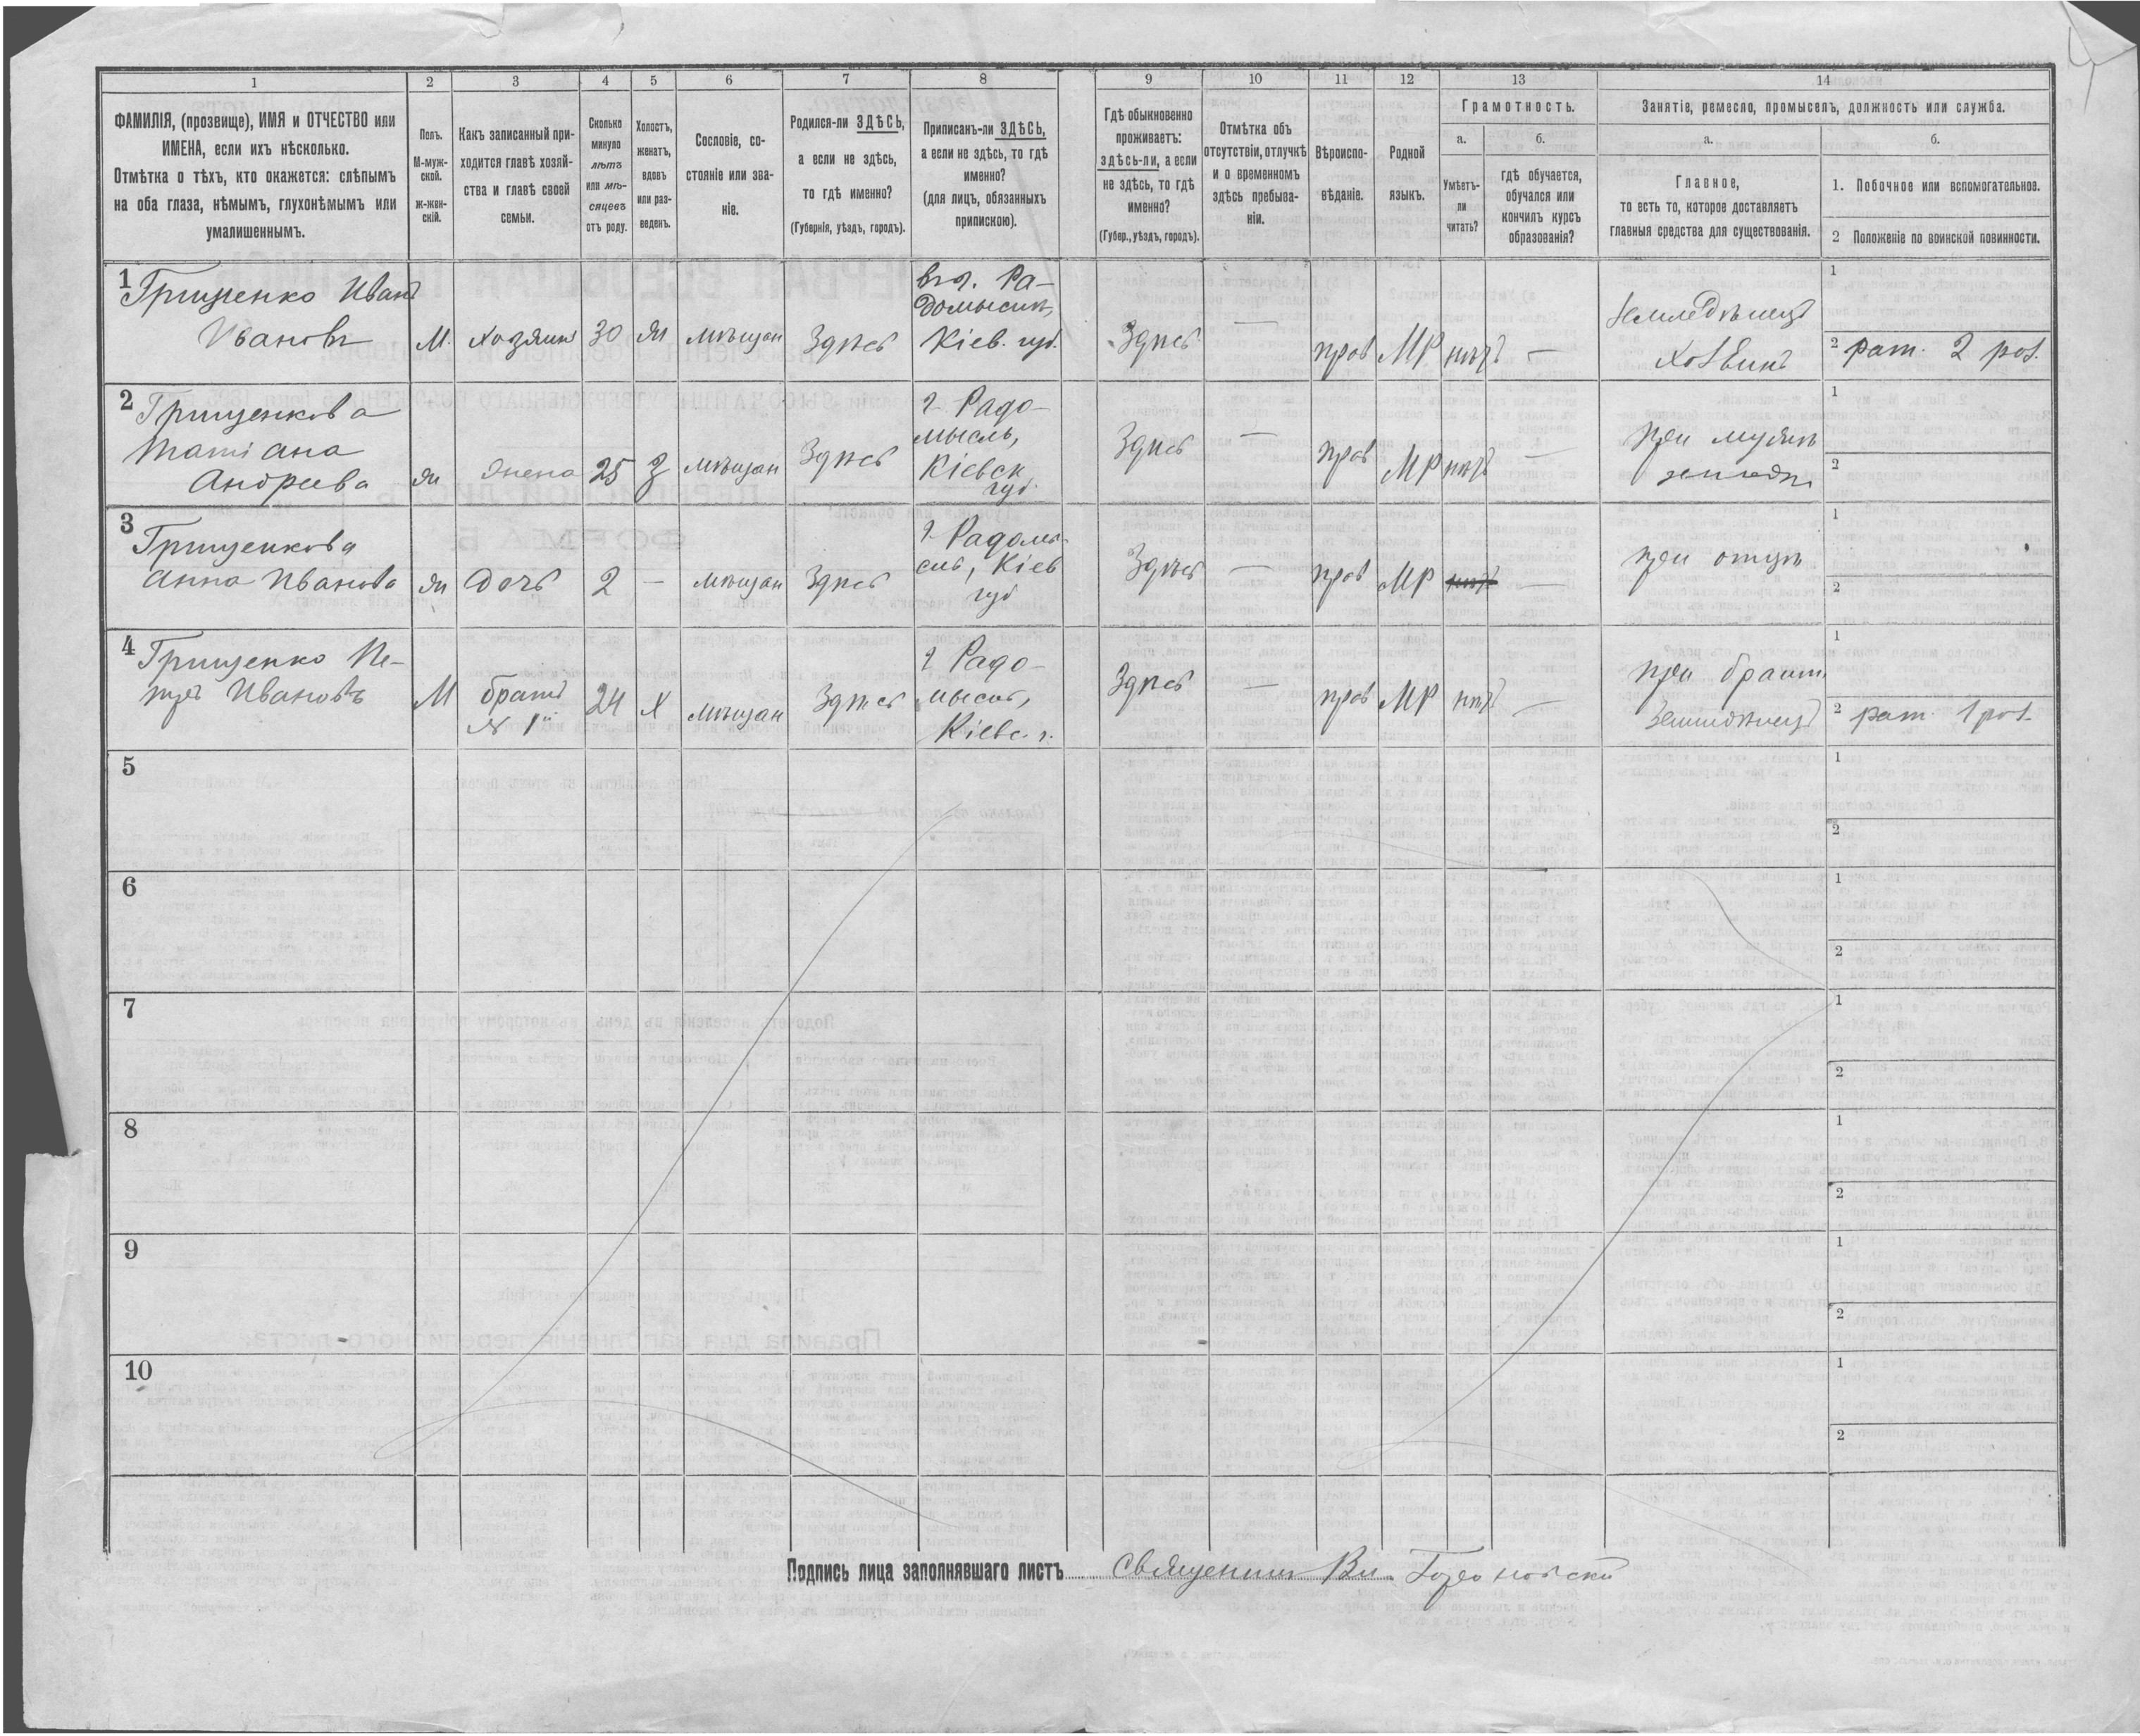 1 2 3 4 5 6 7 8 9 10 11 12 13 14
ФАМИЛІЯ, (прозвище), ИМЯ и ОТЧЕСТВО или
ИМЕНА, если ихъ нѣсколько.
Отмѣтка о тѣхъ, кто окажется: слѣпымъ
на оба глаза, нѣмымъ, глухонѣмымъ или
умалишеннымъ.
Полъ.
М-муж-
ской.
ж-жен-
скій.
Какъ записанный при-
ходится главѣ хозяй-
ства и главѣ своей
семьи.
Сколько
минуло
лѣтъ
или мѣ-
сяцевъ
отъ роду.
Холостъ,
женатъ,
вдовъ
или раз-
веденъ.
Сословіе, со-
стояніе или зва-
ніе.
Родился-ли ЗДѢСЬ,
а если не здѣсь,
то гдѣ именно?
(Губернія, уѣздъ, городъ).
Приписанъ-ли ЗДѢСЬ,
а если не здѣсь, то гдѣ
именно?
(для лицъ, обязанныхъ
припискою).
Гдѣ обыкновенно
проживаетъ:
здѣсь-ли, а если
не здѣсь, то гдѣ
именно?
(Губер., уѣздъ, городъ).
Отмѣтка объ
отсутствіи, отлучкѣ
и о временномъ
здѣсь пребыва-
ніи.
Вѣроиспо-
вѣданіе.
Родной
языкъ.
Грамотность.
а. б.
Умѣетъ-
ли
читать?
гдѣ обучается,
обучался или
кончилъ курсъ
образованія?
Занятіе, ремесло, промыселъ, должность или служба.
а. б.
Главное,
то есть то, которое доставляетъ
главныя средства для существованія.
1. Побочное или вспомогательное.
2 Положеніе по воинской повинности.
1
Грищенко Иванъ
Ивановъ
М. хозяинъ 30 ж мѣщан Здѣсь
въ г. Ра-
домыслѣ,
Кіев. губ.
Здѣсь — прав МР нѣтъ —
Земледѣлецъ
хозяинъ
1
2 рат. 2 раз.
2
Грищенкова
Татіана
Андреева
ж жена 25 З мѣщан Здѣсь
г. Радо-
мысль,
Кіевск
губ.
Здѣсь — прав МР нѣтъ —
при мужѣ
земледѣл
1
2
3
Грищенкова
Анна Иванова
ж дочь 2 — мѣщан Здѣсь
г. Радомы-
сль, Кіев
губ
Здѣсь — прав МР нѣтъ —
при отцѣ
1
2
4
Грищенко Пе-
тръ Ивановъ
М братъ
№ 1й
24 Х мѣщан Здѣсь
г. Радо-
мысль,
Кіевс. г.
Здѣсь — прав МР нѣтъ —
при братѣ
Земледѣлецъ
1
2 рат. 1 раз.
5
1
2
6
1
2
7
1
2
8
1
2
9
1
2
10
1
2
Подпись лица заполнявшаго листъ Священникъ Вл.